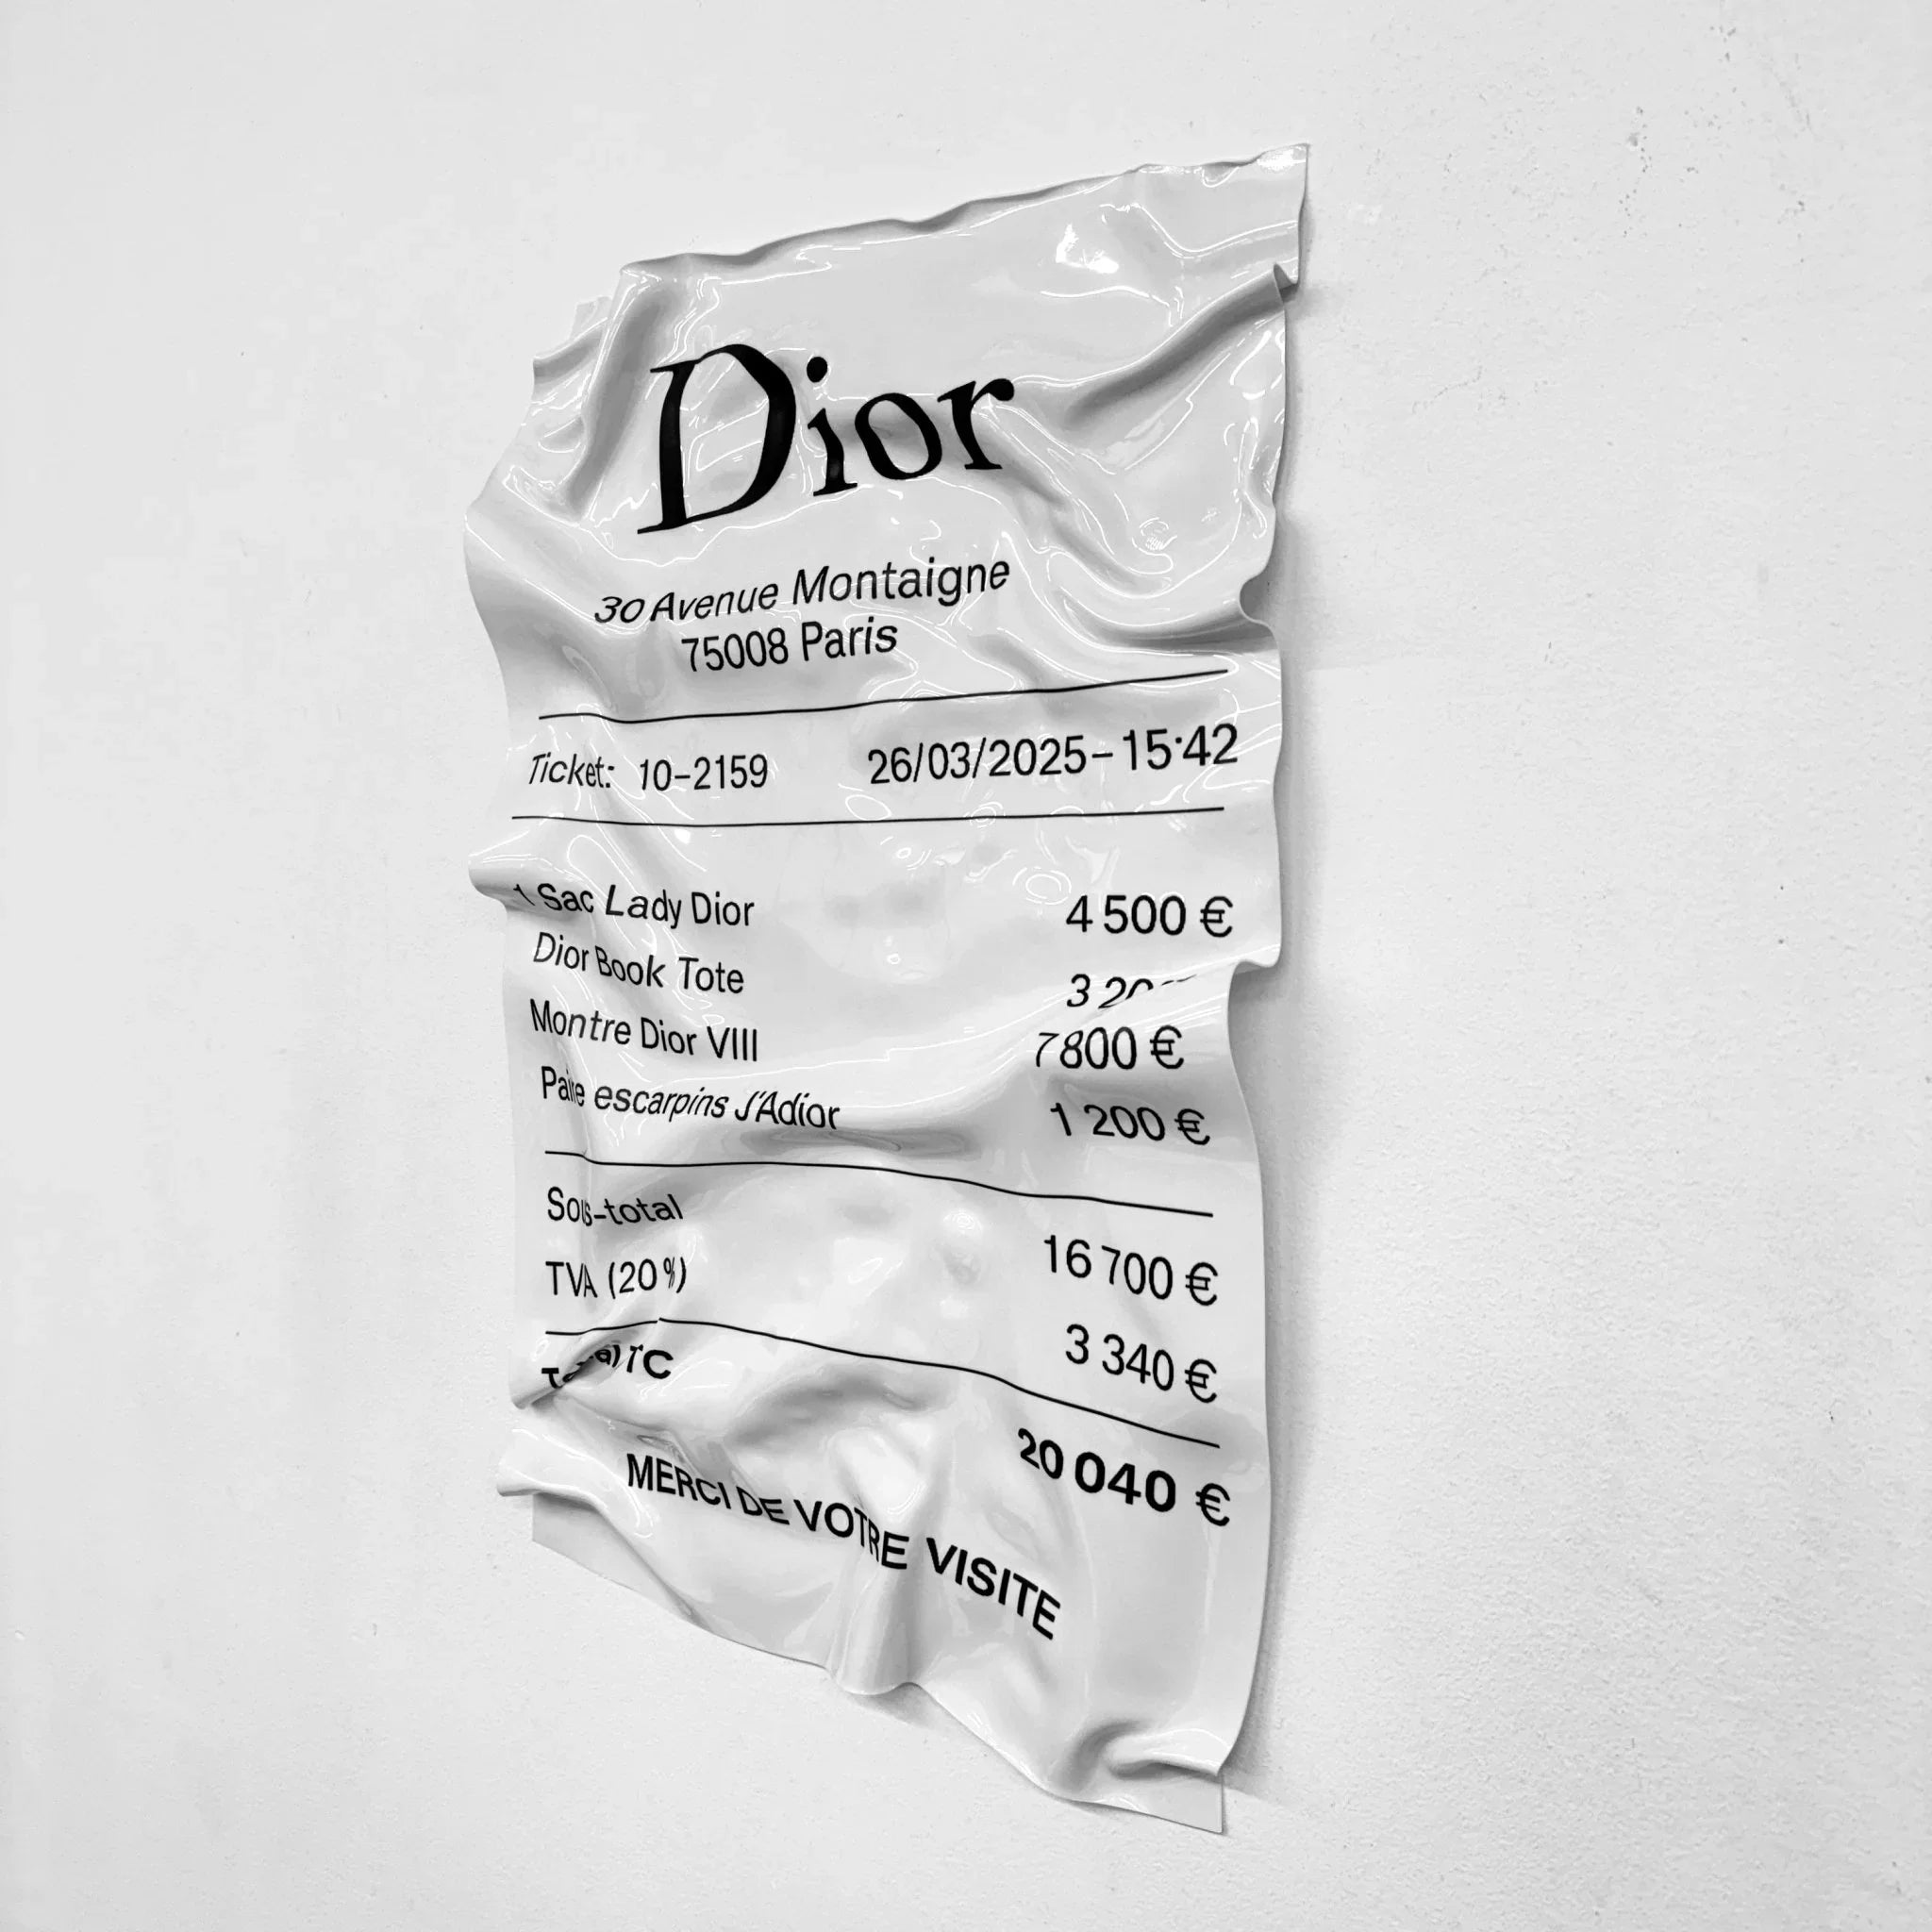 Dior
30 Avenue Montaigne
75008 Paris
Ticket: 10-2159 26/03/2025-15:42
1 Sac Lady Dior 4 500 €
Dior Book Tote
Montre Dior VIII 7800 €
Paire escarpins J'Adior 1 200 €
Sous-total 16 700 €
TVA (20%) 3 340 €
20 040 €
MERCI DE VOTRE VISITE